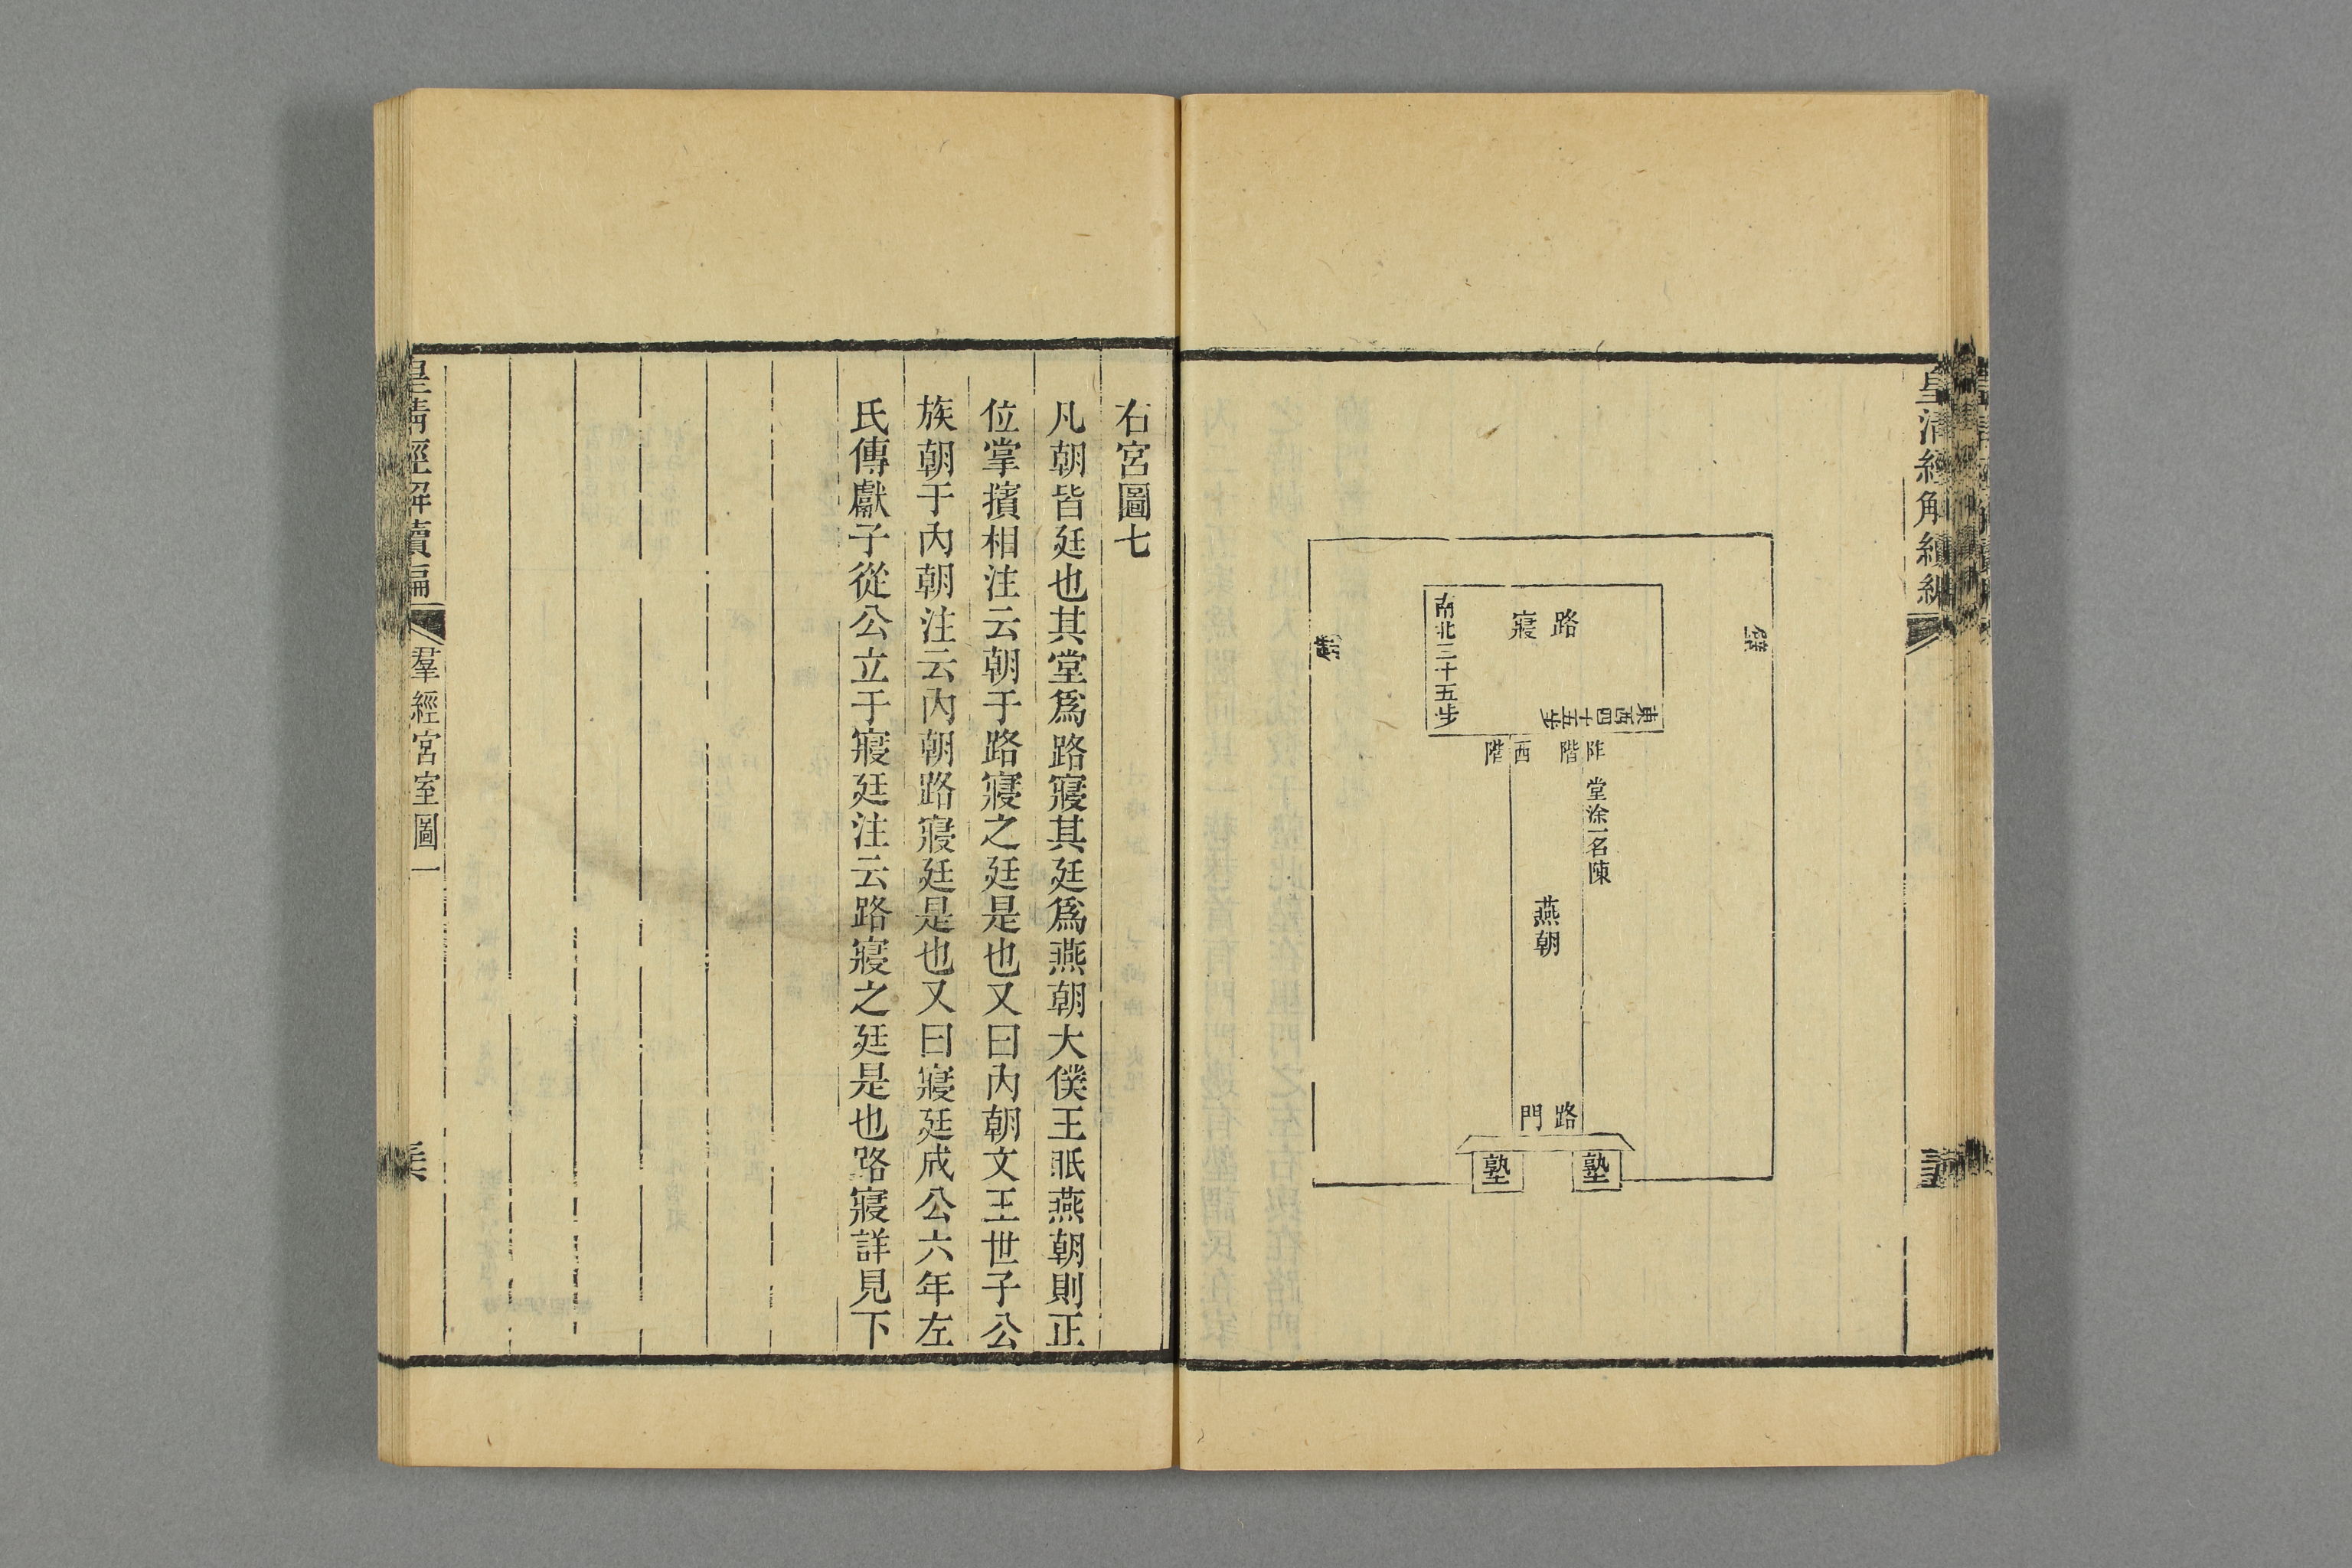 皇清經解續編
路寢
南北三十五步
東西四十五步
阼階
西階
堂涂一名陳
燕朝
路門
塾
塾
右宮圖七
凡朝皆廷也其堂爲路寢其廷爲燕朝大僕王眡燕朝則正
位掌擯相注云朝于路寢之廷是也又曰內朝文王世子公
族朝于內朝注云內朝路寢廷是也又曰寢廷成公六年左
氏傳獻子從公立于寢廷注云路寢之廷是也路寢詳見下
皇清經解續編
羣經宮室圖一